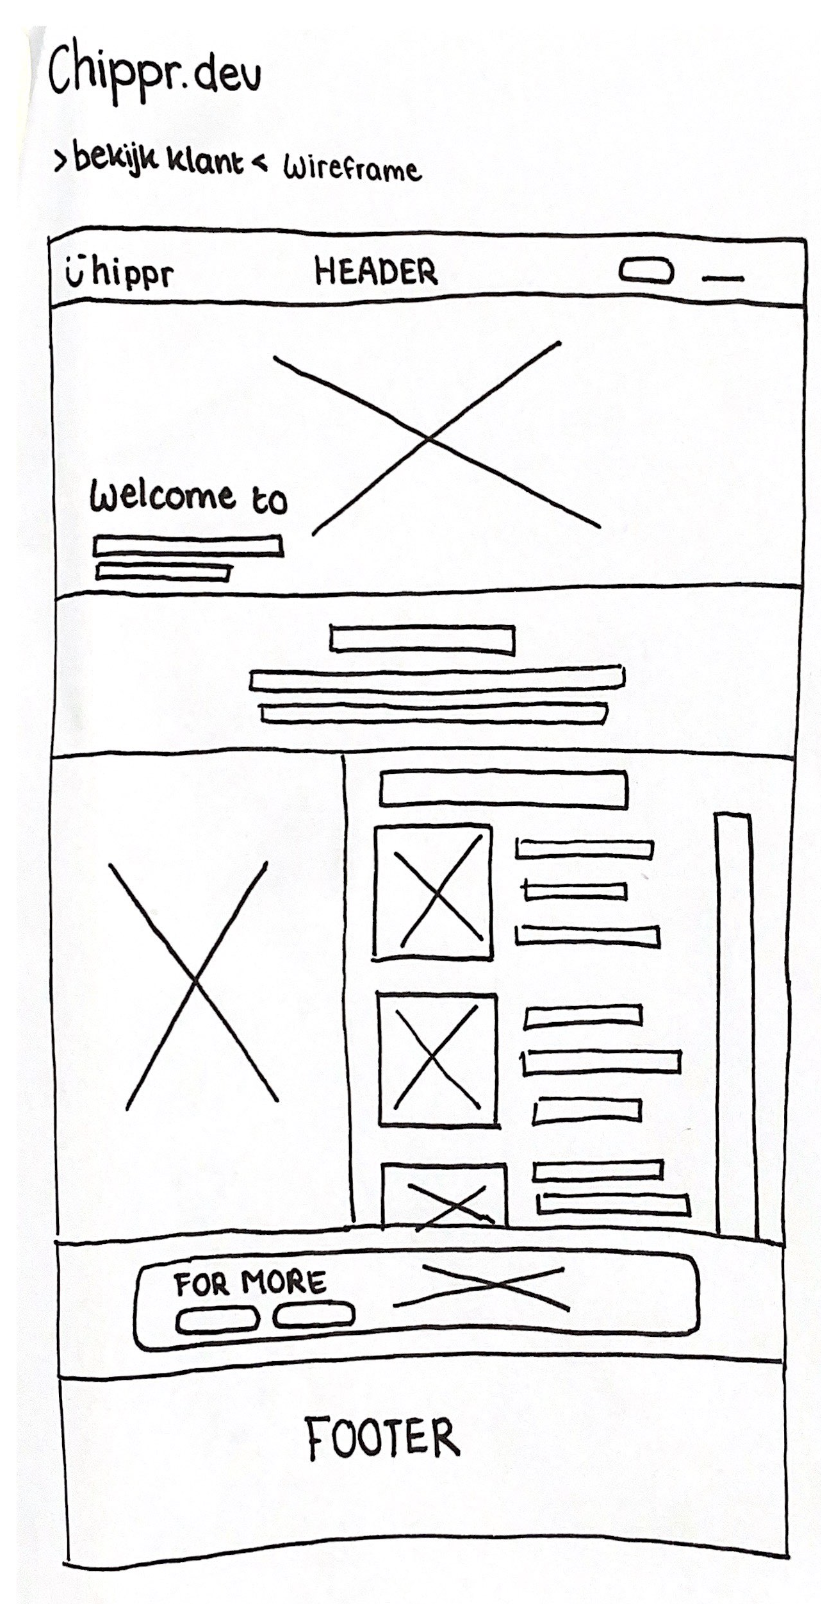 Chippr.dev
>bekijk klant< wireframe
Chippr HEADER
Welcome to
FOR MORE
FOOTER